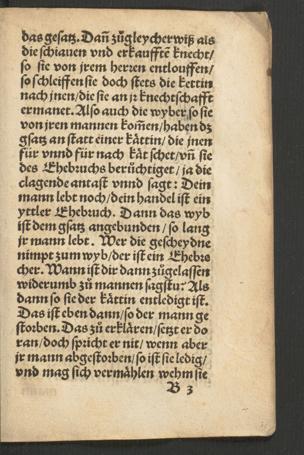 das gesatz. Dañ zůgleycherwiß als
die schiauen vnd erkauffte knecht/
so sie von jrem herren entlouffen/
so schleiffen sie doch stets die kettin
nach jnen/die sie an jr knechtschafft
ermanet. Also auch die wyber so sie
von jren mannen kom̃en/haben dz
gsatz an statt einer kåttin/die jnen
für vnnd für nach kåt schet/vñ sie
des Ehebruchs berüchtiget/ja die
clagende antast vnnd sagt: Dein
mann lebt noch/dein handel ist ein
yttler Ehebruch. Dann das wyb
ist dem gsatz angebunden/so lang
jr mann lebt. Wer die gescheydne
nimpt zum wyb/der ist ein Ehebre
cher. Wann ist dir dann zůgelassen
widerumb zů mannen sagstu: Als
dann so sie der kåttin entledigt ist.
Das ist eben dann/so der mann ge
storben. Das zů erklåren/setzt er do
ran/doch spricht er nit/wenn aber
jr mann abgestorben/so ist sie ledig/
vnd mag sich vermåhlen wehm sie
B 3